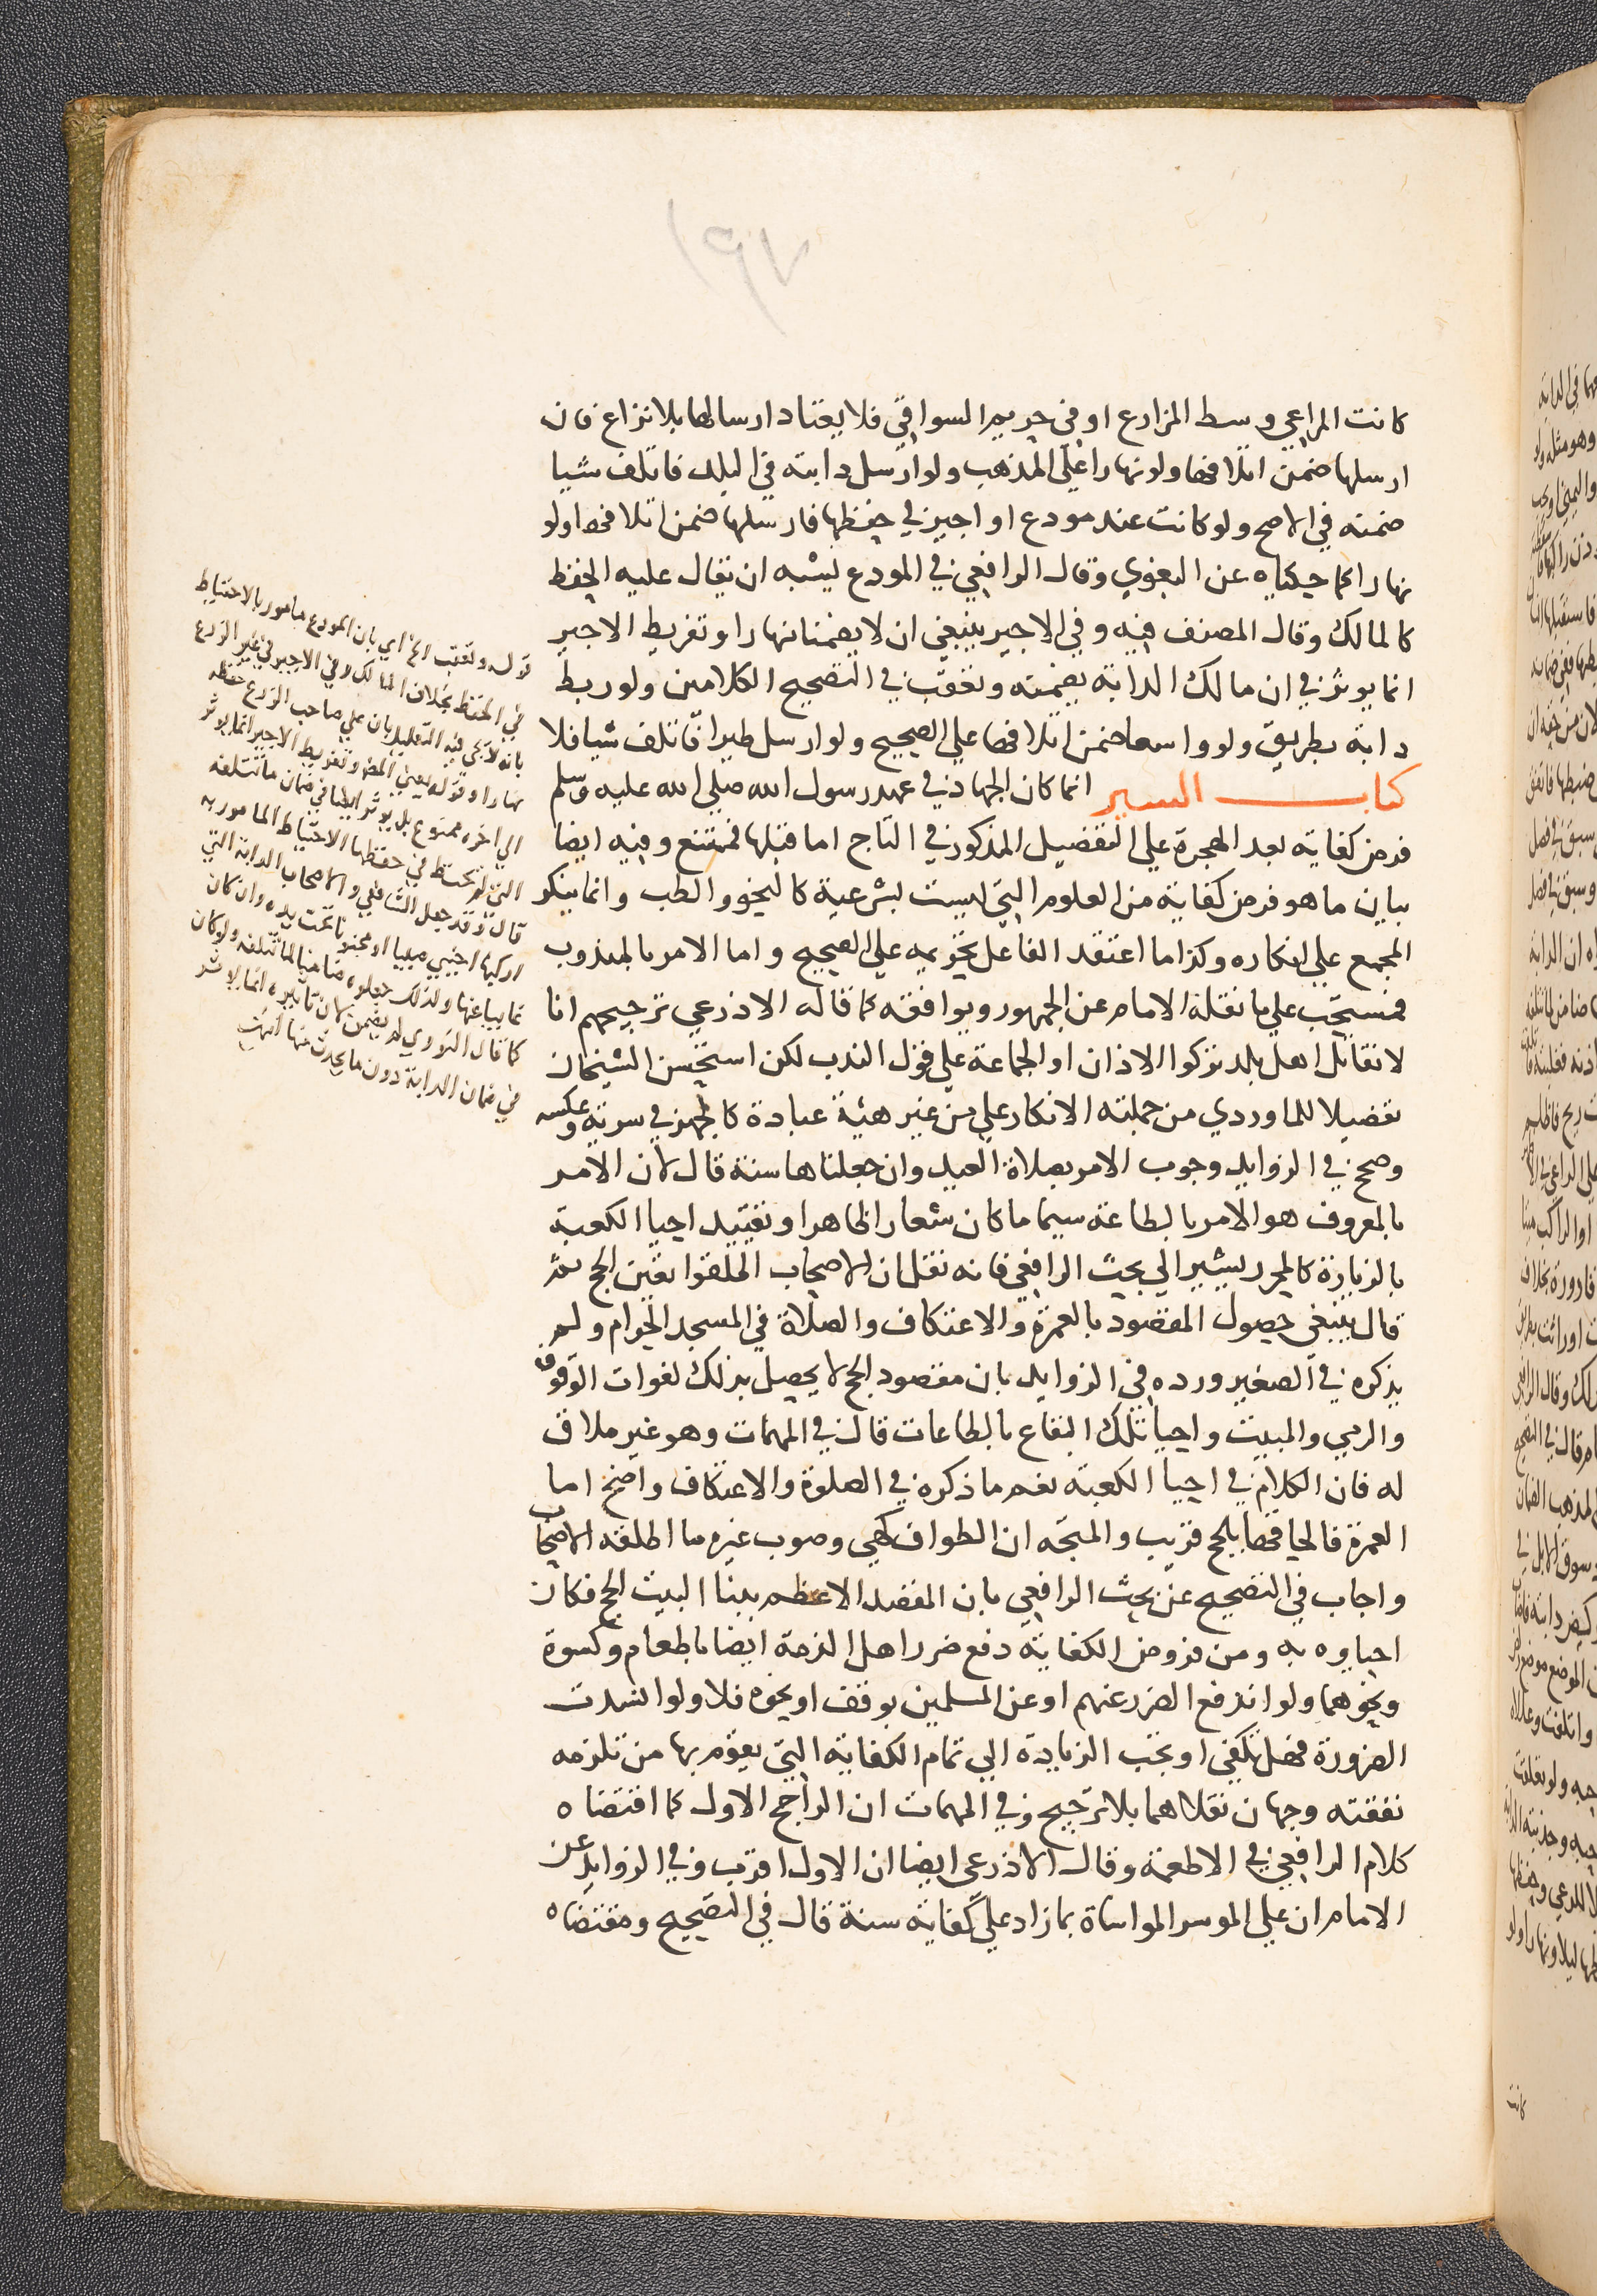 ١٩٧
كانت المراعي وسط المزارع او في حريم السواقي فلا يعتاد ارسالها بلا نزاع فان
ارسلها ضمن اتلافها ولو نهارا على المذهب ولو ارسل دابته في البلد فاتلف شيا
ضمنه في الاصح ولو كانت عند مودع او اجير في حفظها فارسلها ضمن اتلافها ولو
نهارا كما حكياه عن البغوي وقال الرافعي في المودع يشبه ان يقال عليه الحفظ
كالمالك وقال المصنف فيه وفي الاجير ينبغي ان لا يضمنا نهارا وتفريط الاجير
انما يوثر في ان مالك الدابة يضمنه وتعقب في التصحيح الكلامين ولو ربط
دابة بطريق ولو واسعا ضمن اتلافها علي الصحيح ولو ارسل طيرا فاتلف شيا فلا
كتاب السير انما كان الجهاد في عهد رسول الله صلي الله عليه وسلم
فرض كفاية بعد الهجرة علي التفضيل المذكور في التاج اما قبلها فممتنع وفيه ايضا
بيان ما هو فرض كفاية من العلوم التي ليست بشرعية كالنحو والطب وانما ينكر
المجمع علي انكاره وكذا ما اعتقد الفاعل تحريمه علي الصحيح واما الامر بالمندوب
فمستحب علي ما نقله الامام عن الجمهور ويوافقه كما قاله الاذرعي ترجيحهم انا
لا نقاتل اهل بلد تركوا الاذان او الجماعة علي قول الندب لكن استحسن الشيخان
تفصيلا للماوردي من جملته الانكار علي من غير هيئة عبادة كالجهر في سرية وعكسه
وصحح في الزوايد وجوب الامر بصلاة العيد وان جعلناها سنة قال لان الامر
بالمعروف هو الامر بالطاعة سيما ما كان شعارا ظاهرا وتقييد احيا الكعبة
بالزيارة كالمحرر يشير الي بحث الرافعي فانه نقل ان الاصحاب اطلقوا تعين الحج ثم
قال ينبغي حصول المقصود بالعمرة والاعتكاف والصلاة في المسجد الحرام ولم
يذكره في الصغير ورده في الزوايد بان مقصود الحج لا يحصل بذلك لفوات الوقوف
والرمي والمبيت واحيا تلك البقاع بالطاعات قال في المهمات وهو غير ملاق
له فان الكلام في احيا الكعبة نعم ما ذكره في الصلوة والاعتكاف واضح اما
العمرة فالحاقها بالحج قريب والمتجه ان الطواف كهي وصوب غيره ما اطلقه الاصحاب
واجاب في التصحيح عن بحث الرافعي بان المقصد الاعظم ببنا البيت الحج فكان
احياوه به ومن فروض الكفاية دفع ضرر اهل الذمة ايضا باطعام وكسوة
ونحوهما ولو اندفع الضرر عنهم او عن المسلمين بوقف او نحوه فلا ولو انسدت
الضرورة فهل يكفي او تجب الزيادة الي تمام الكفاية التي يقوم بها من تلزمه
نفقته وجهان نقلاهما بلا ترجيح وفي المهمات ان الراجح الاول كما اقتضاه
كلام الرافعي في الاطعمة وقال الاذرعي ايضا ان الاول اقرب وفي الزوايد عن
الامام ان علي الموسر المواساة بما زاد علي كفاية سنة قال في التصحيح ومقتضاه
قوله وتعقب الخ اي بان المودع مامور بالاحتياط
في الحفظ بخلاف المالك وفي الاجير في غير الزرع
بانه لا يجي فيه التعليل بان علي صاحب الزرع حفظه
نهارا وقوله يعني المص وتفريط الاجير انما يوثر
الي اخره ممنوع بل يوثر ايضا في ضمان ما تتلفه
التي لم يحتط في حفظها الاحتياط المامور به
قال وقد جعل الشافعي والاصحاب الدابة التي
اركبها اجنبي صبيا او مجنونا تحت يده وان كان
غايبا عنها ولذلك جعلوه ضامنا لما تتلفه ولو كان
كما قال النووي لم يضمن لان تاثيره انما يوثر
في ضمان الدابة دون ما يحدث منها انتهت
كانت